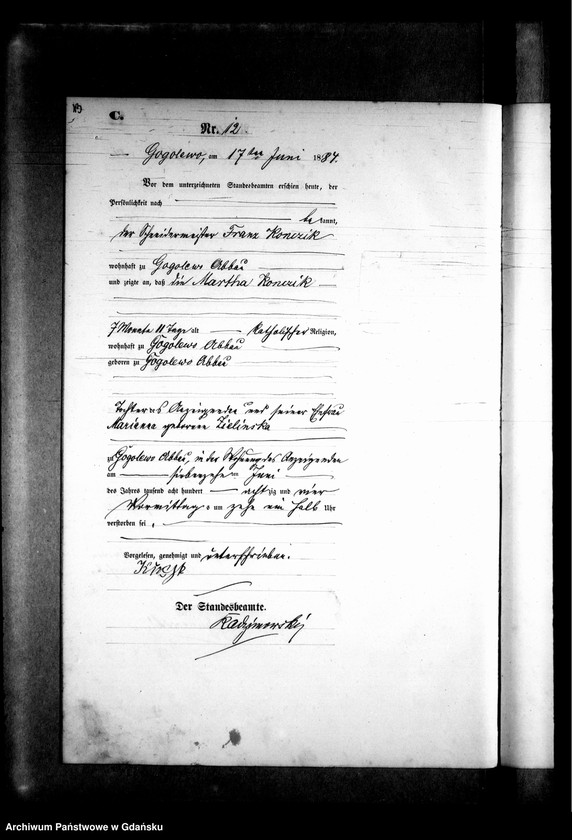 C.
Nr. 12.
Gogolewo, am 17ten Juni 1884.
Vor dem unterzeichneten Standesbeamten erschien heute, der
Persönlichkeit nach
bekannt,
der Schneidermeister Franz Konczik
wohnhaft zu Gogolewo Abbau
und zeigte an, daß die Martha Konczik
7 Monate 11 Tage alt katholischer Religion,
wohnhaft zu Gogolewo Abbau
geboren zu Gogolewo Abbau
Tochter des Anzeigenden und seiner Ehefrau
Marianna geborene Zielinska
zu Gogolewo Abbau, in der Wohnung des Anzeigenden
am siebenzehn ten Juni
des Jahres tausend acht hundert achtzig und vier
Vormittags um zehn ein halb Uhr
verstorben sei.
Vorgelesen, genehmigt und unterschrieben.
Der Standesbeamte.
Archiwum Państwowe w Gdańsku